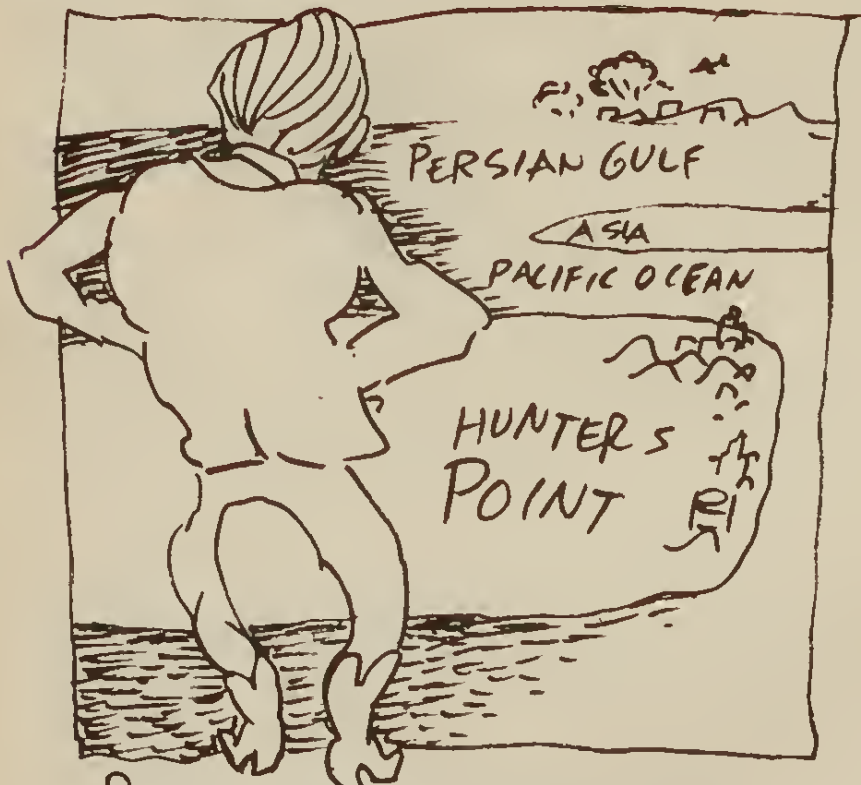 PERSIAN GULF
ASIA
PACIFIC OCEAN
HUNTERS
POINT